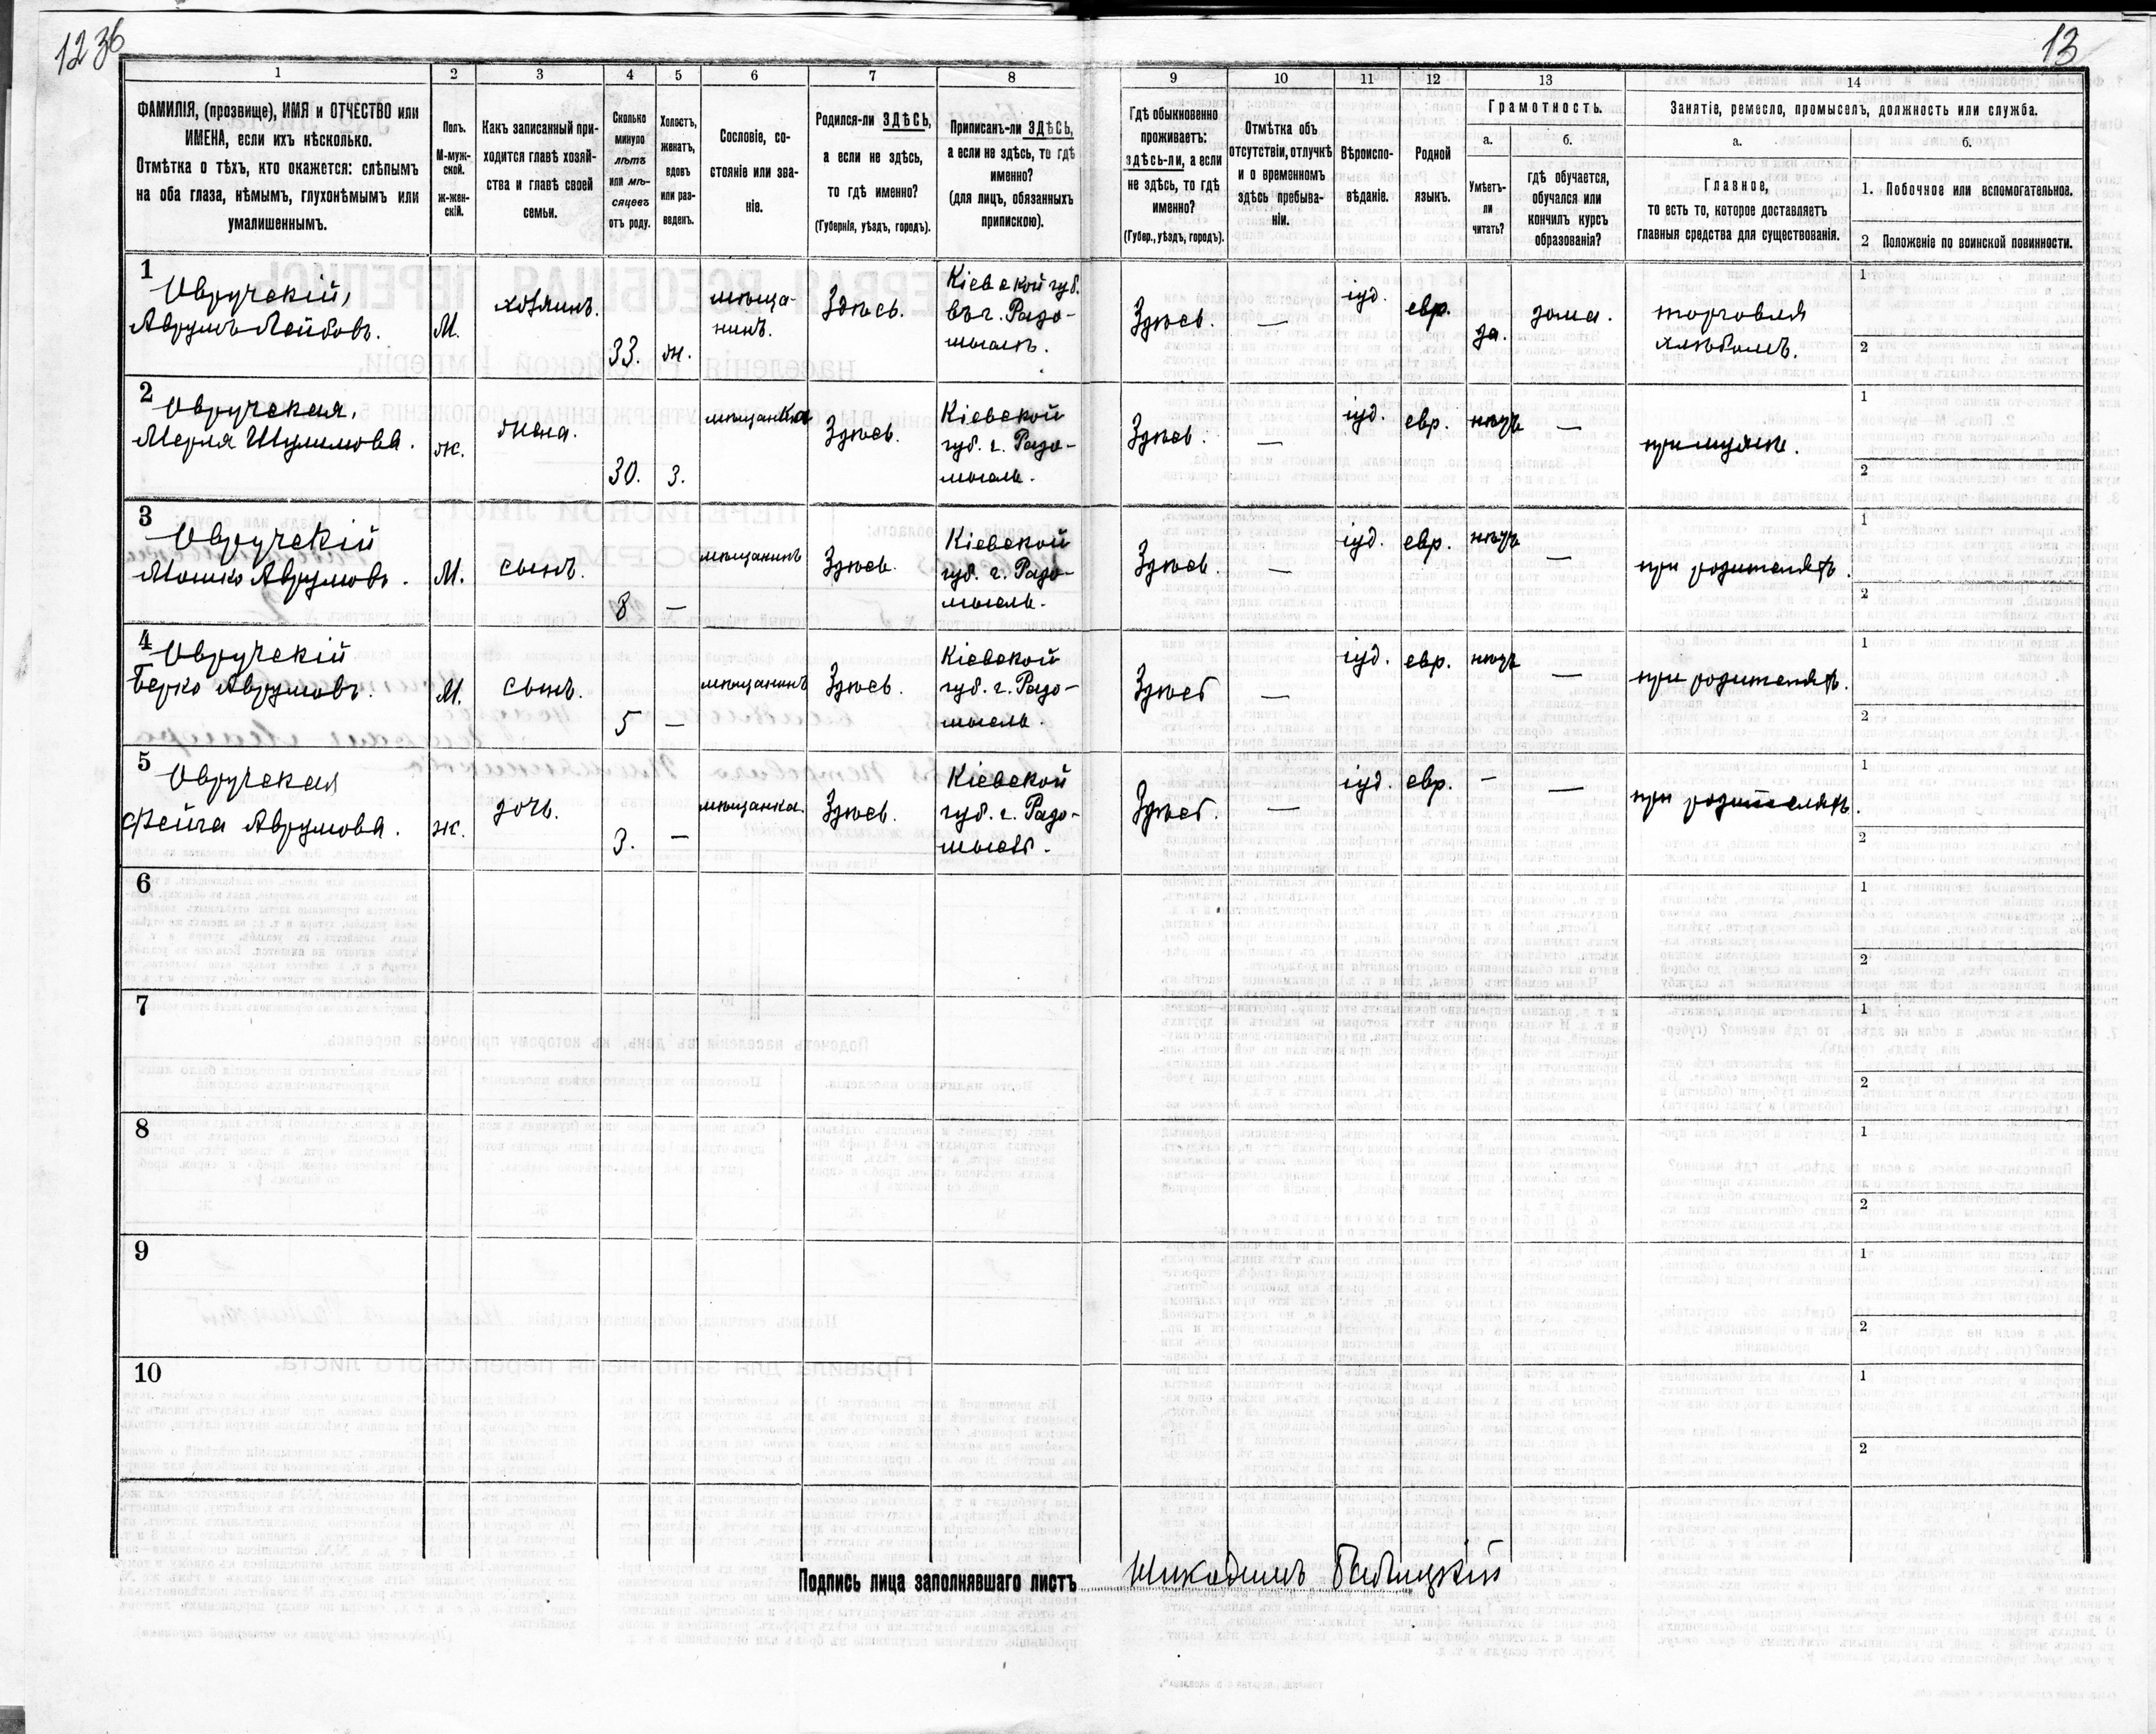 1236
13
1
2
3
4
5
6
7
8
9
10
11
12
13
14
ФАМИЛІЯ, (прозвище), ИМЯ и ОТЧЕСТВО или
ИМЕНА, если ихъ нѣсколько.
Отмѣтка о тѣхъ, кто окажется: слѣпымъ
на оба глаза, нѣмымъ, глухонѣмымъ или
умалишеннымъ.
Полъ.
М-муж-
ской.
Ж-жен-
скій.
Какъ записанный при-
ходится главѣ хозяй-
ства и главѣ своей
семьи.
Сколько
минуло
лѣтъ
или мѣ-
сяцевъ
отъ роду.
Холостъ,
женатъ,
вдовъ
или раз-
веденъ.
Сословіе, со-
стояніе или зва-
ніе.
Родился-ли ЗДѢСЬ,
а если не здѣсь,
то гдѣ именно?
(Губернія, уѣздъ, городъ).
Приписанъ-ли ЗДѢСЬ,
а если не здѣсь, то гдѣ
именно?
(для лицъ, обязанныхъ
припискою).
Гдѣ обыкновенно
проживаетъ:
здѣсь-ли, а если
не здѣсь, то гдѣ
именно?
(Губер., уѣздъ, городъ).
Отмѣтка объ
отсутствіи, отлучкѣ
и о временномъ
здѣсь пребыва-
ніи.
Вѣроиспо-
вѣданіе.
Родной
языкъ.
Грамотность.
а.
Умѣетъ-
ли
читать?
б.
гдѣ обучается,
обучался или
кончилъ курсъ
образованія?
Занятіе, ремесло, промыселъ, должность или служба.
а.
Главное,
то есть то, которое доставляетъ
главныя средства для существованія.
б.
1. Побочное или вспомогательное.
2 Положеніе по воинской повинности.
1
Овручскій,
Аврумъ Лейбовъ.
М.
хозяинъ.
33.
ж.
мѣща-
нинъ.
Здѣсь.
Кіевской губ.
въ г. Радо-
мыслѣ.
Здѣсь.
—
іуд.
евр.
да.
дома.
торговля
хлѣбомъ.
1
2
2
Овручская,
Мерля Шулимова.
ж.
жена.
30.
з.
мѣщанка
Здѣсь.
Кіевской
губ. г. Радо-
мысль.
Здѣсь.
—
іуд.
евр.
нѣтъ
—
при мужѣ.
1
2
3
Овручскій
Мошко Аврумовъ.
М.
сынъ.
8
—
мѣщанинъ
Здѣсь.
Кіевской
губ. г. Радо-
мысль.
Здѣсь.
—
іуд.
евр.
нѣтъ
—
при родителяхъ.
1
2
4
Овручскій
Берко Аврумовъ.
М.
сынъ.
5
—
мѣщанинъ
Здѣсь.
Кіевской
губ. г. Радо-
мысль.
Здѣсь
—
іуд.
евр.
нѣтъ
—
при родителяхъ.
1
2
5
Овручская
Фейга Аврумова.
ж.
дочь.
3.
—
мѣщанка.
Здѣсь.
Кіевской
губ. г. Радо-
мысль.
Здѣсь.
—
іуд.
евр.
-
—
при родителяхъ.
1
2
6
1
2
7
1
2
8
1
2
9
1
2
10
1
2
Подпись лица заполнявшаго листъ
Никодимъ